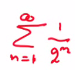 \sum_{n=1}^{\infty} \frac{1}{2^n}